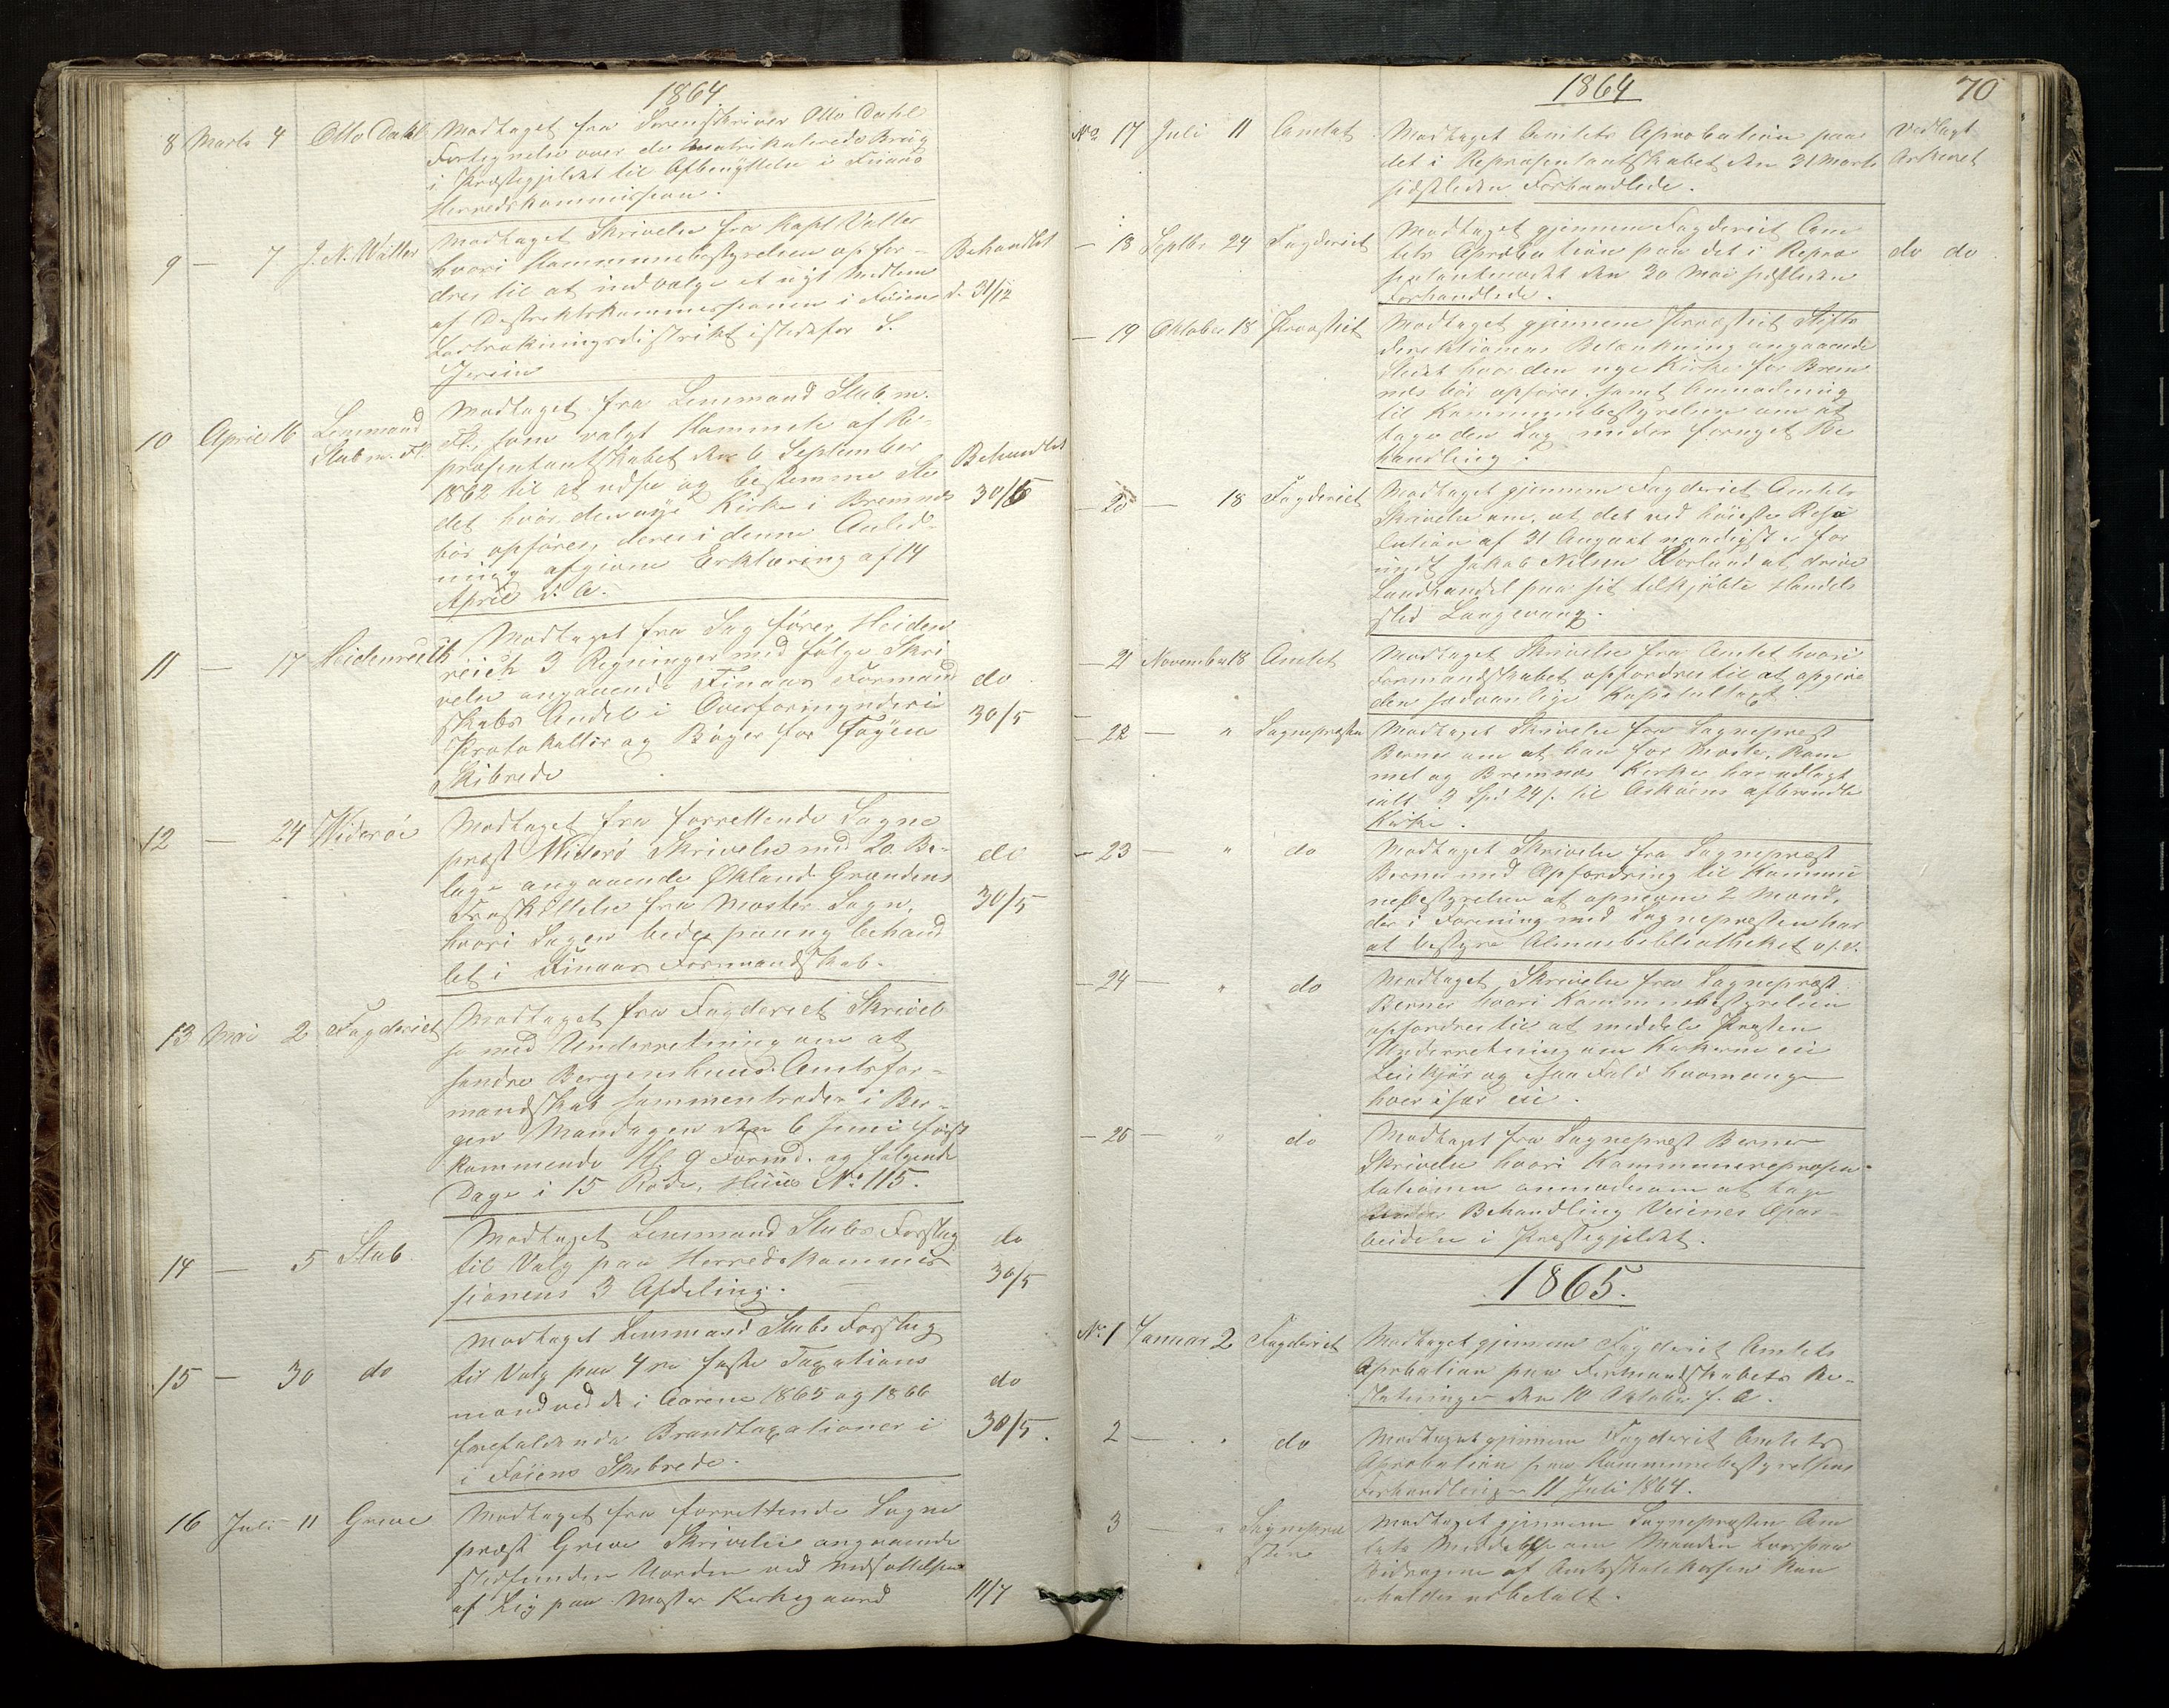 1864
8 Marts 4 Otto Dahl Modtaget fra Sorenskriver Otto Dahl
Fortegnelse over de matrikulerede Brug
i Præstegjeldet til Afbenyttelse i Finaas
Herredskommission.
9 — 7 J. N. Walter Modtaget Skrivelse fra Kapt Valter Behandlet
hvori Kommunebestyrelsen opfor-
dres til at indvælge et nyt Medlem
af Destriktskommissionen i Føiens d. 31/12
Lostrækningsdistrikt istedetfor S.
10 April 16 Lensmand Stub m. Fl. Modtaget fra Lensmand Stub m.
Fl., som valgt Kommite af Re-
præsentantskabet den 6 September Behandlet
1862 til at udse og bestemme Ste 30/5
det hvor den nye Kirke i Bremnes
bør opføres, deres i denne Anled-
ning afgivne Erklæring af 14
April d. A.
11 — 17 Heidenreich Modtaget fra Sagfører Heiden
reich 3 Regninger med følge Skri
velse angaaende Finaas Formand do
skabs Andel i Overformynderi 30/5
Protokoller og Bøger for Føyen
Skibrede
12 — 24 Widerøe Modtaget fra forrettende Sogne
præst Widerø Skrivelse med 20 Bi- do
lage angaaende Økland Grændens 30/5
Fraskillelse fra Moster Sogn,
hvori Sagen bedes paany behand
let i Finaas Formandskab.
13 Mai 2 Fogderiet Modtaget fra Fogderiet Skrivel
se med Underretning om at
søndre Bergenhuus Amtsfor-
mandskab sammentræder i Ber-
gen Mandagen den 6 Juni først
kommende Kl. 9 Formd. og følgende
Dage i 15 Rode, Huus No 115.
14 — 5 Stub. Modtaget Lensmand Stubs Forslag do
til Valg paa Herredskommis 30/5
sionens 3 Afdeling.
15 — 30 do Modtaget Lensmand Stubs Forslag
til Valg paa 4re faste Taxations do
mænd ved de i Aarene 1865 og 1866
forefaldende Brandtaxationer i 30/5.
i Føiens Skibrede.
16 Juli 11 Greve Modtaget fra forrettende Sogne
præst Greve Skrivelse angaaende
stedfunden Uorden ved Nedsættelsen
af Lig paa Moster Kirkegaard 11/7
1864 70
No 17 Juli 11 Amtet Modtaget Amtets Aprobation paa Vedlagt
det i Repræsentantskabet den 31 Marts Arkivet
sidstleden Forhandlede.
— 18 Septbr 24 Fogderiet Modtaget gjennem Fogderiet Am
tets Aprobation paa det i Repræ do do.
sentantmødet den 30 Mai sidstleden
Forhandlede.
— 19 Oktober 18 Provstiet Modtaget gjennem Provstiet Stifts
direktionens Betænkning angaaende
Stedet hvor den nye Kirke for Brem
nes bør opføres, samt Anmodning
til Kommunebestyrelsen om at
tage den Sag under fornyet Be
handling.
— 20 — 18 Fogderiet Modtaget gjennem Fogderiet Amtets
Skrivelse om, at det ved høieste Reso
lution af 31 August naadigst er for
undt Jakob Nilsen Vorland at drive
Landhandel paa sit tilkjøbte Handels
sted Langevaag.
— 21 November 18 Amtet Modtaget Skrivelse fra Amtet hvori
Formandskabet opfordres til at opgive
den sædvanlige Kapiteltaxt.
— 22 — " Sognepræsten Modtaget Skrivelse fra Sognepræst
Berner om at han for Moster, Bøm
mel og Bremnes Kirker har udlagt
ialt 3 Spd 24 s. til Askøens afbrændte
Kirke.
— 23 — " do Modtaget Skrivelse fra Sognepræst
Berner med Opfordring til Kommu
nebestyrelsen at opnevne 2 Mænd,
der i Forening med Sognepræsten har
at bestyre Almuebibliotheket o. s. v.
— 24 — " do Modtaget Skrivelse fra Sognepræst
Berner hvori Kommunebestyrelsen
opfordres til at meddele Præsten
Underretning om Kirkerne eie
Liigkjør og isaa Fald hvormange
hver især eie.
— 25 — " do Modtaget fra Sognepræst Berner
Skrivelse hvori Kommunerepræsen-
tationen anmodes om at tage
under Behandling Veienes Opar-
beidelse i Præstegjeldet.
1865.
No 1 Januar 2 Fogderiet Modtaget gjennem Fogderiet Amtets
Aprobation paa Formandskabets Be-
slutninger den 10 Oktober f. A.
2 — " do Modtaget gjennem Fogderiet Amtets
Aprobation paa Kommunebestyrelsens
Forhandlinger 11 Juli 1864.
3 — " Sognepræ sten Modtaget gjennem Sognepræsten Am
tets Meddelelse om Maaden hvorpaa
Bidragene af Amtsskolekassen kan
erholdes udbetalt.